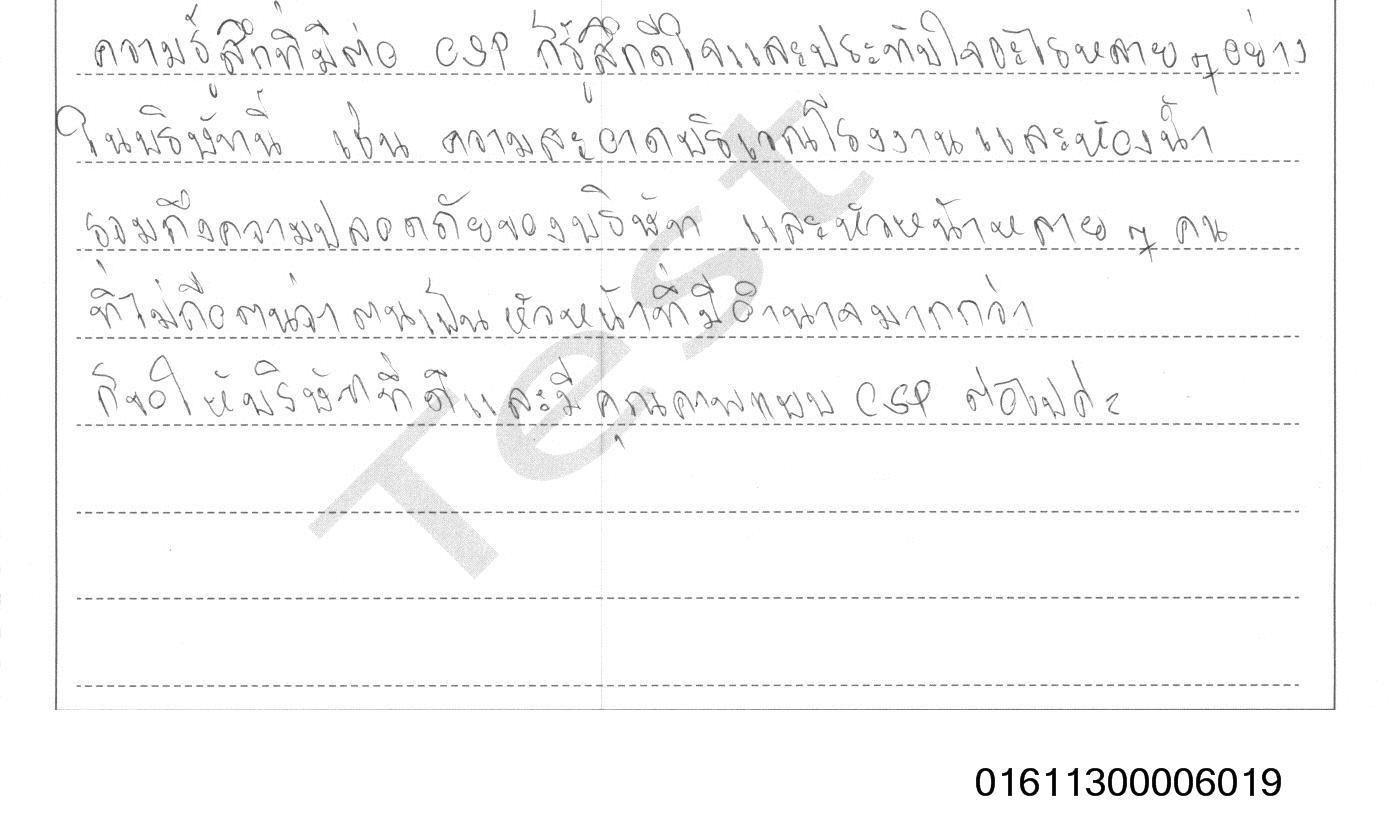 ความรู้สึกที่มีต่อ CSP ก็รู้สึกดีใจและประทับใจอะไรหลาย ๆ อย่าง
ในบริษัทนี้ เช่น ความสะอาดบริเวณโรงงานและห้องน้ำ
รวมถึงความปลอดภัยของบริษัท และหัวหน้าหลาย ๆ คน
ที่ไม่ถือตนว่าตนเป็นหัวหน้าที่มีอำนาจมากกว่า
ก็ขอให้บริษัทที่ดีและมีคุณภาพแบบ CSP ต่อไปค่ะ
Test
01611300006019